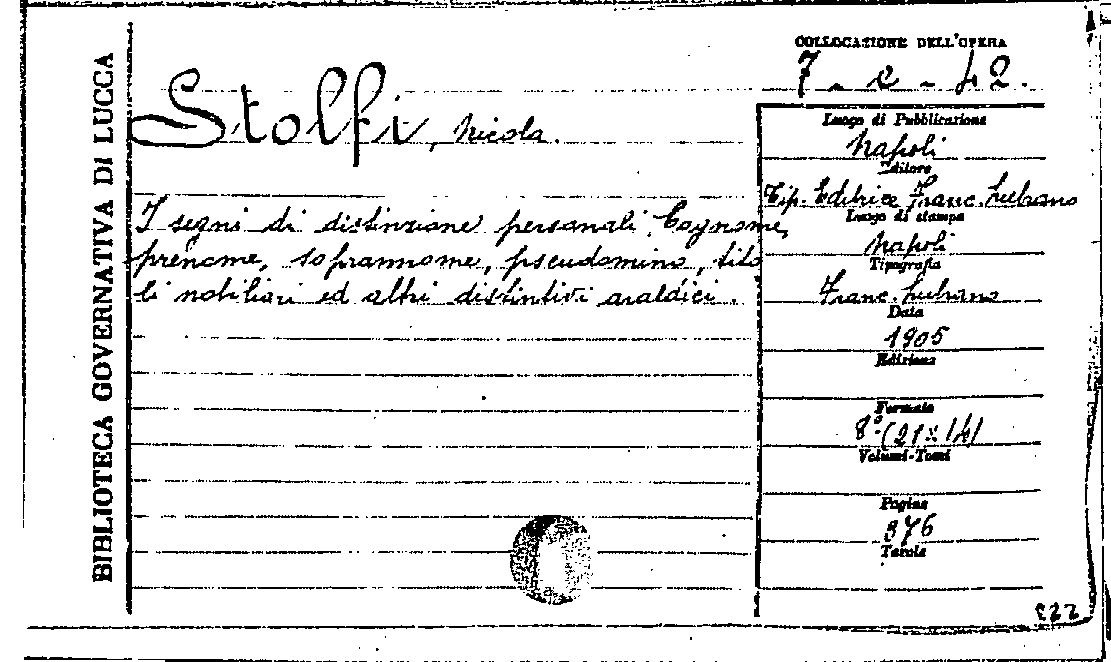 BIBLIOTECA GOVERNATIVA DI LUCCA
COLLOCAZIONE DELL'OPERA
7 - e - 42.
Stolfi, Nicola.
I segni di distinzione personali. Cognome,
prenome, soprannome, pseudomino, tito
li nobiliari ed altri distintivi araldici.
Luogo di Pubblicazione
Napoli
Editore
Tip. Editrice Franc. Lubrano
Luogo di stampa
Napoli
Tipografia
Franc. Lubrano
Data
1905
Edizione
Formato
8° (21 x 14)
Volumi-Tomi
Pagine
376
Tavole